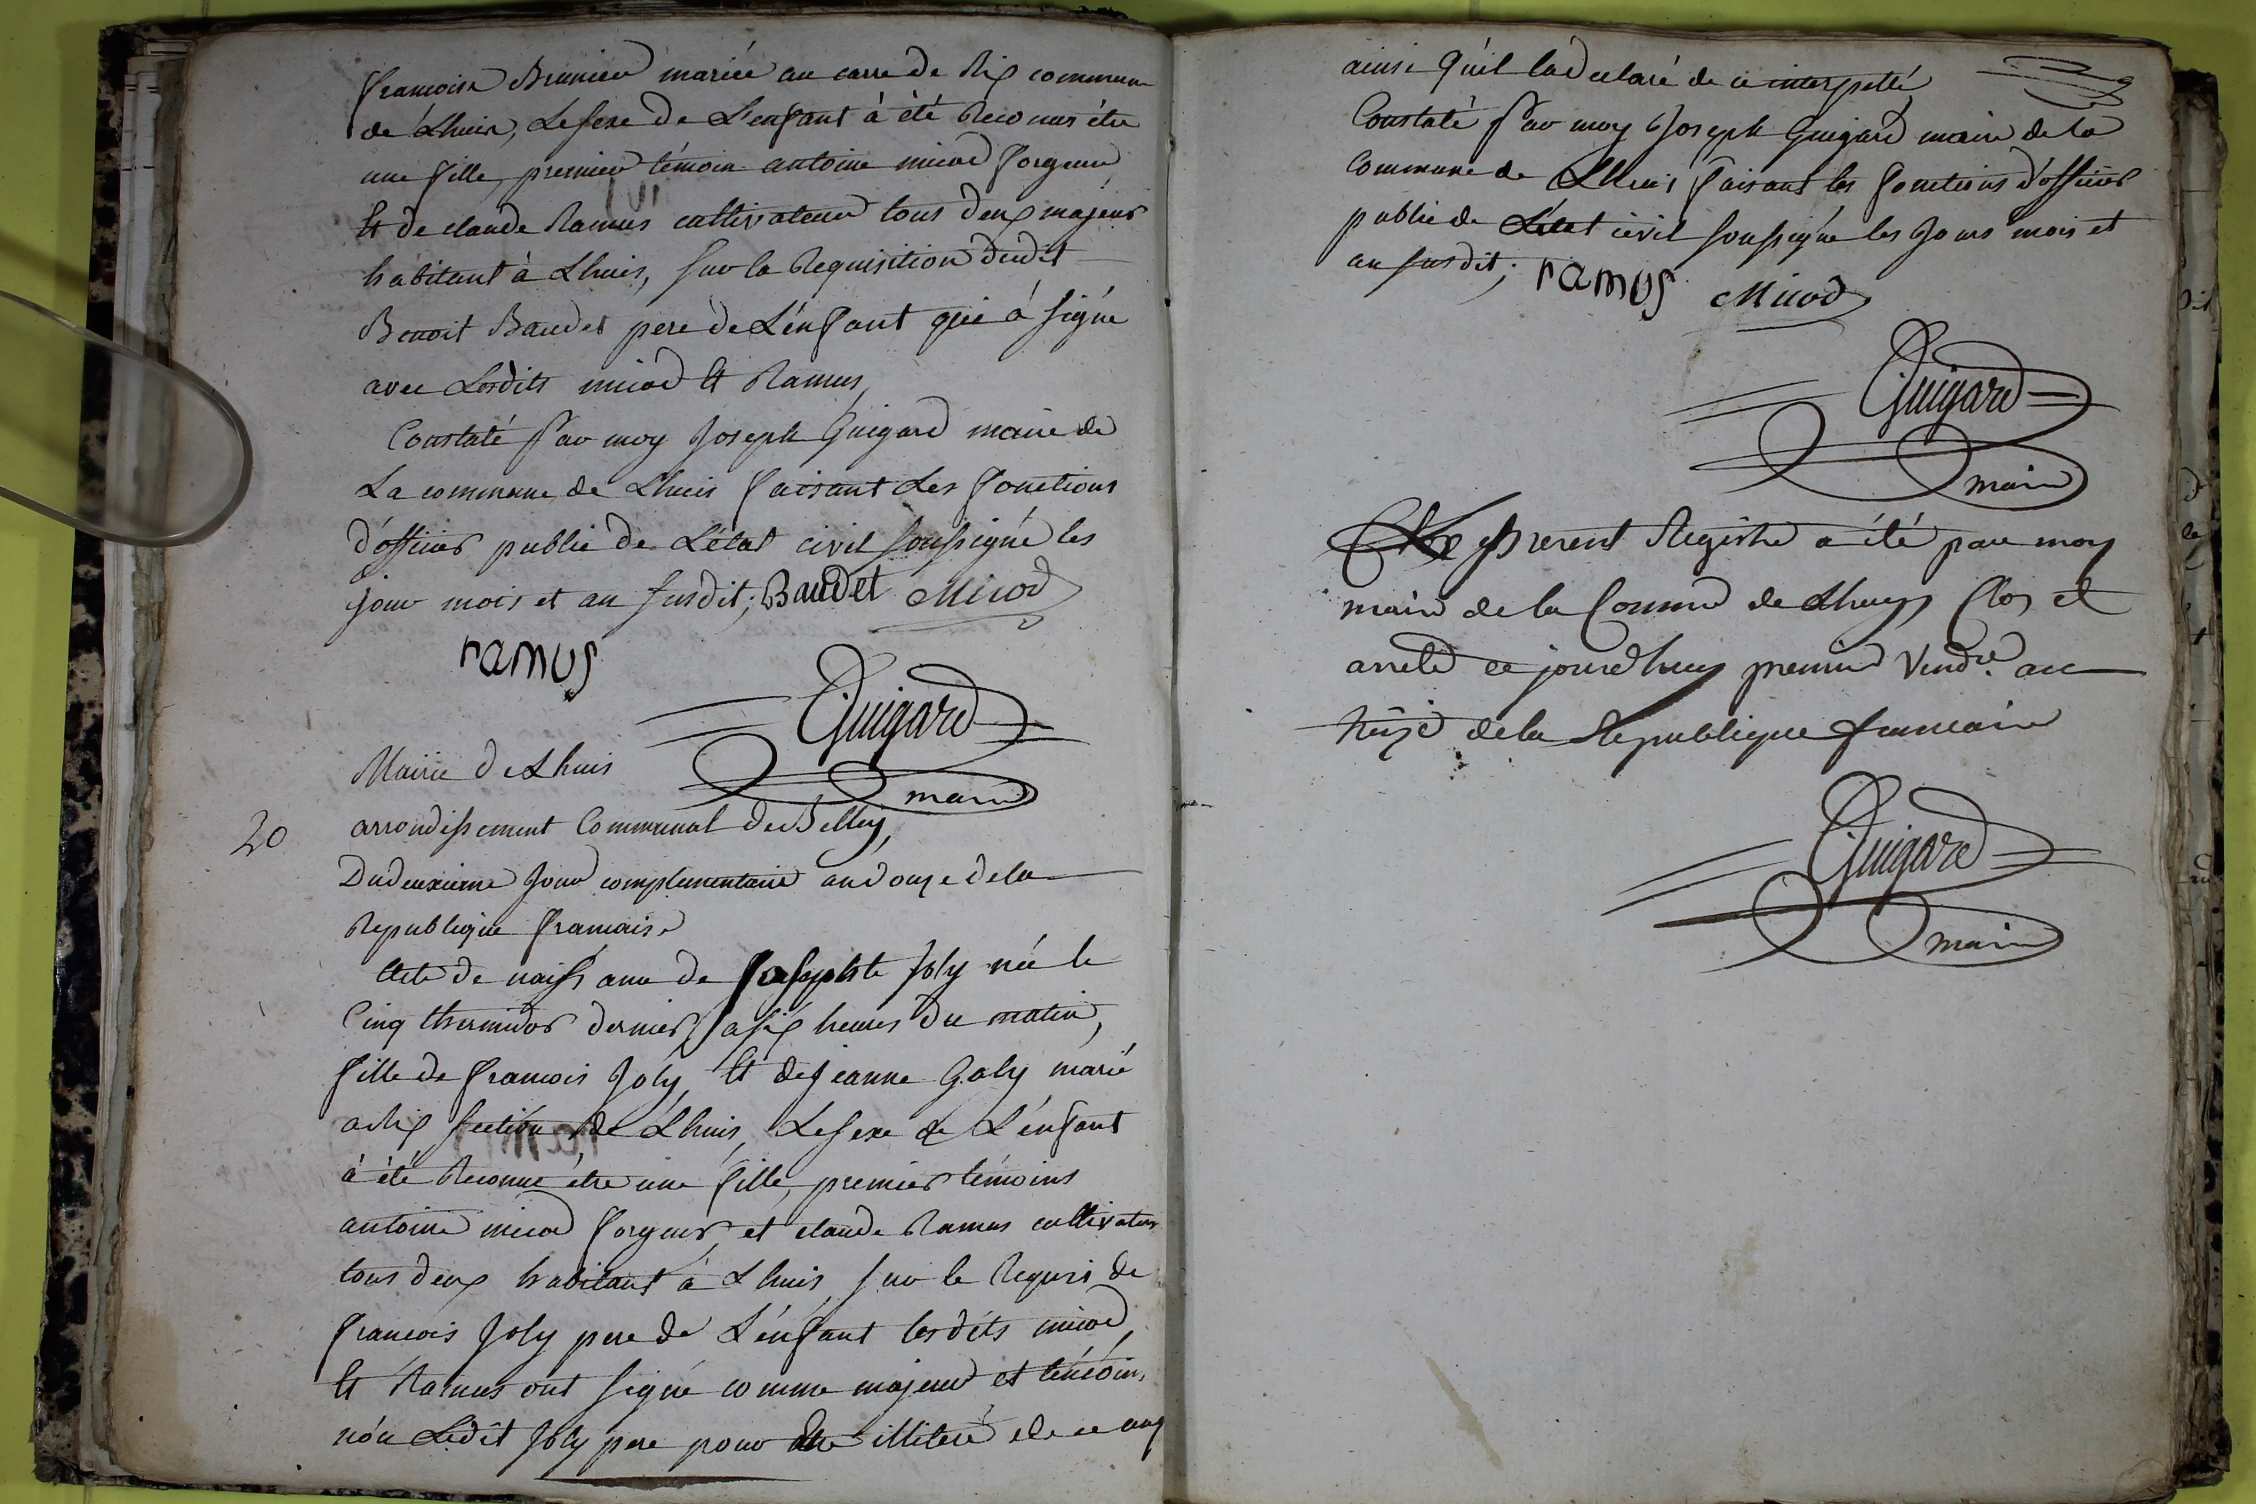 francoise Brunier mariée au carre de Rix commune
de Lhuis, Le sexe de L'enfant à été Reconus étre
une fille, premier témoin antoine micod forgeur,
Et de claude Ramus cultivateur tous deux majeur
habitant à Lhuis, sur la Requisition dudit
Benoit Baudet pere de L'énfant qui à signé
avec Lesdits micod Et Ramus,
Constaté Par moy Joseph Guigard maire de
La commune de Lhuis faisant Les fonctions
d'officier public de L'état civil soussigné les
jour mois et an susdit; Baudet Micod
ramus
Guigard
maire
Mairie de Lhuis
20
arrondissement Communal de Belley,
Du deuxieme Jour complementaire an douze de la
Republique francaise
Acte de naissance de Josephte Joly née le
Cinq thermidor dernier, a six heures du matin,
fille de francois Joly, Et de jeanne Galy marié
a Rix section de Lhuis, Le sexe de L'énfant
à été Reconnu étre une fille, premier témoins
antoine micod forgeur, et claude Ramus cultivateur
tous deux habitant à Lhuis, sur le Requis de
francois Joly pere de L'énfant lesdits micod,
Et Ramus ont signé comme majeur et témoin,
nón Ledit Joly pere pour Etre illiteré de ce enq
ainsi quil la déclaré de ce interpellé,
Constaté Par moy Joseph Guigard maire de la
Commune de Lhuis faisant les fonctions d'officier
public de L'état civil soussigné les Jours mois et
an susdit; ramus Micod
Guigard
maire
present Registre a été par moy
maire de la Commune de Lhuys Clos et
arreté ce jourdhuy premier Vend.re an
treize de la Republique francaise
Guigard
maire